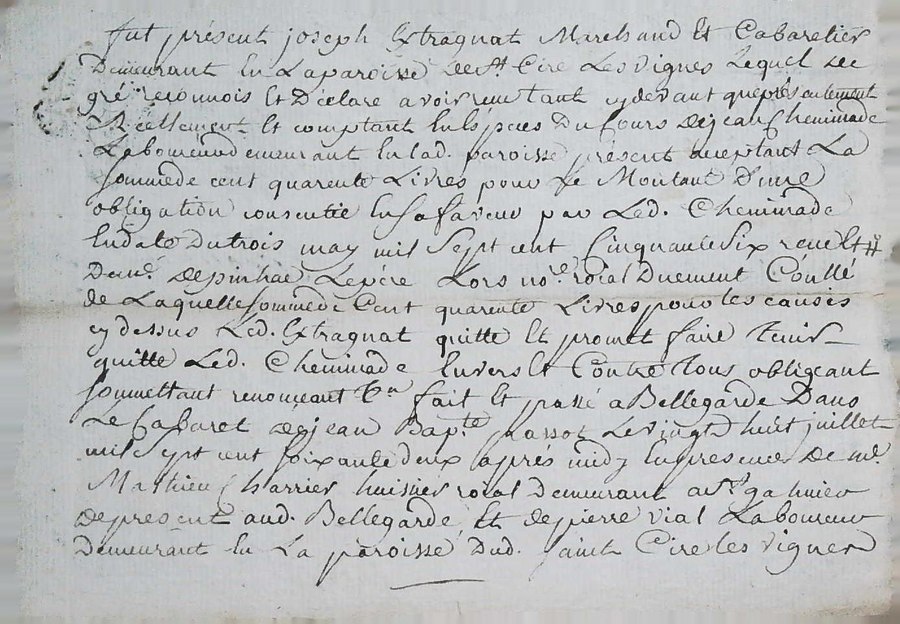 fut présent joseph Extragnat Marchand Et Cabaretier
Demeurant En La paroisse de St Cire Les vignes Lequel de
gré reconnois Et Déclare avoir reu tant cydevant que présentement
Réellement Et comptant En Espèces Du Cours de jean Cheminade
Laboureur demeurant En Lad. paroisse présent aceptant La
somme de cent quarente Livres pour Le Montant D'une
obligation consentie En sa faveur par Led. Cheminade
En date du trois may mil Sept cent Cinquante Six reue Et
Dame. depinhac Lepère Lors nore. roial Duement Côntlé
de Laquelle somme de Cent quarente Livres pour les causes
cy dessus Led. Extragnat quitte Et promet faire tenir
quitte Led. Cheminade Envers Et Contre tous obligeant
sommettant renonceant fait Et passé a Bellegarde Dans
Le Cabaret de jean Bapte. passot Le vingt huit juillet
mil Sept cent soixante deux après midy En presence de me.
Mathieu Charrier huisier roial Demeurant a St. galmier
de present aud. Bellegarde Et de pierre vial Laboureur
Demeurant En La paroisse Dud. saint Cire les vignes